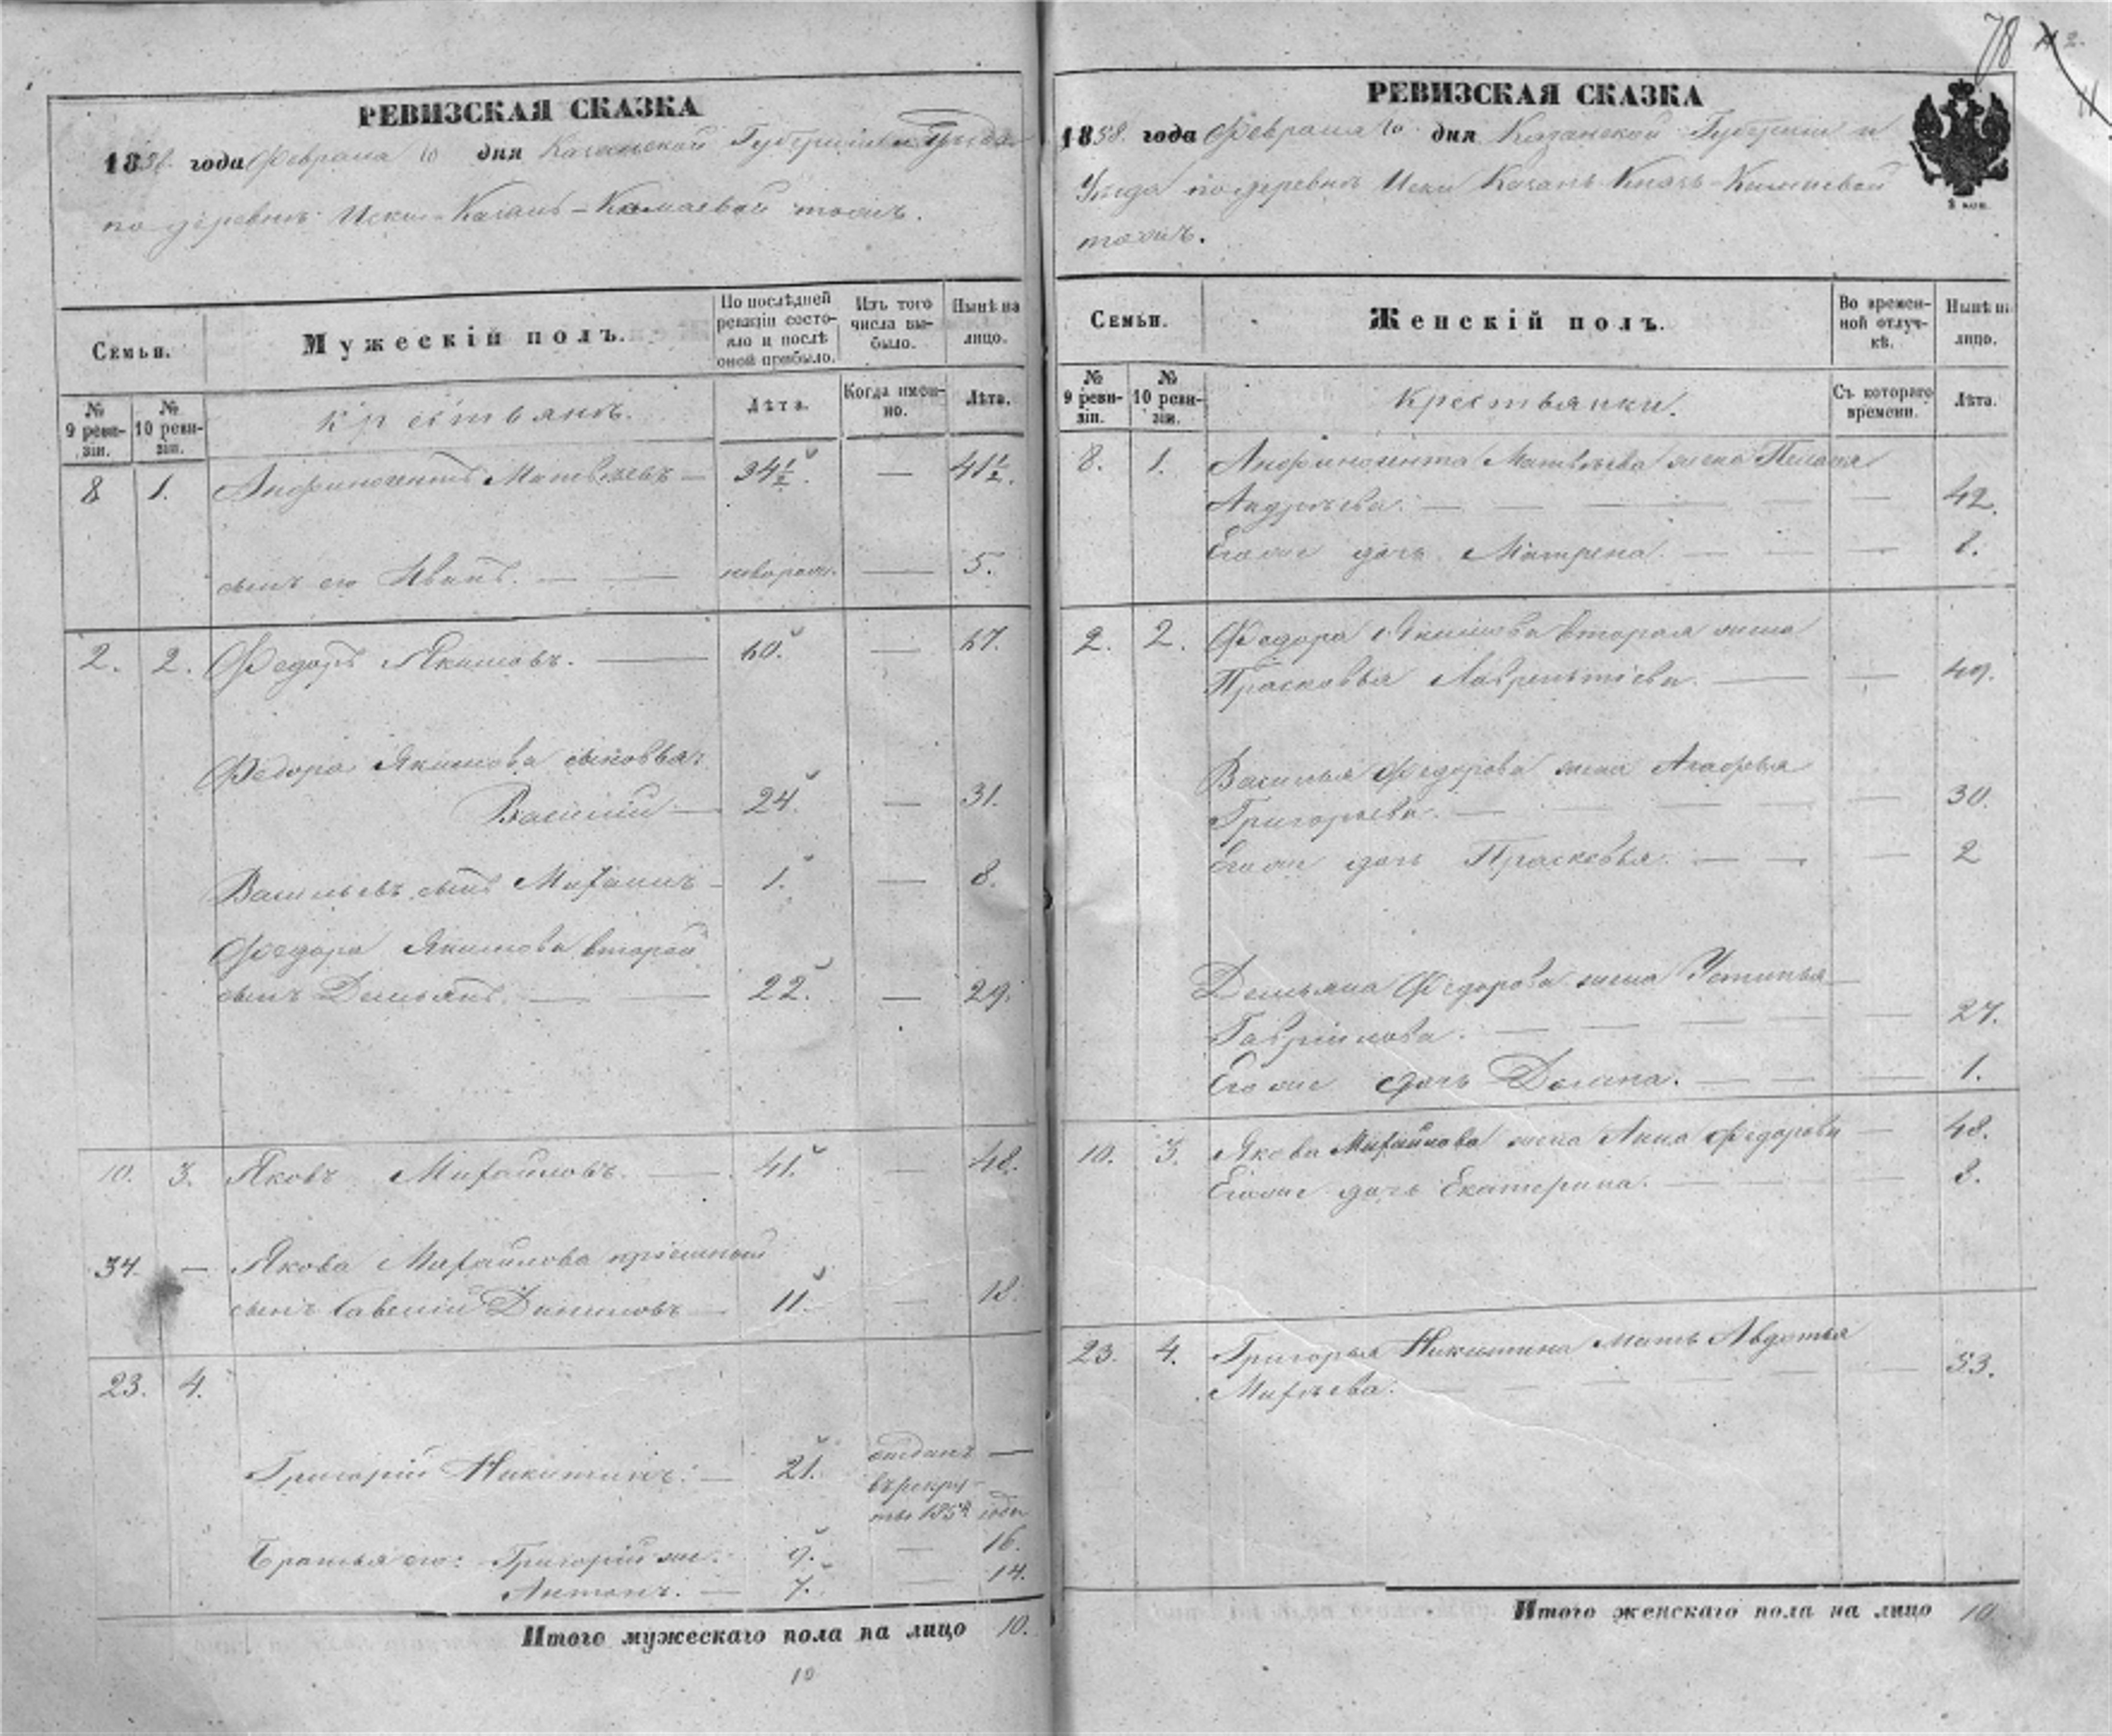 78
2.
РЕВИЗСКАЯ СКАЗКА
1858. года Февраля 10 дня Казанской Губерніи и Уѣзда
по деревнѣ Иски-Казань-Камаевой тожъ.
Семьи.
Мужескій полъ.
По послѣдней ревизіи состояло и послѣ оной прибыло.
Изъ того числа выбыло.
Нынѣ на лицо.
№ 9 ревизіи.
№ 10 ревизіи.
крестьянъ.
Лѣта.
Когда именно.
Лѣта.
8 1. Матвѣевъ — 34½. — 41½.
сынъ его Иванъ. — — новорож. — 5.
2. 2. Федоръ Якимовъ. — 60. — 67.
Федора Якимова сыновья
Василій — 24. — 31.
Васильевъ сынъ Михаилъ — 1. — 8.
Федора Якимова второй
сынъ Демьянъ. — — 22. — 29.
10. 3. Яковъ Михайловъ. — 41. — 48.
34. — Якова Михайлова пріемный
сынъ Савелій Даниловъ — 11. — 18.
23. 4.
Григорій Никитинъ. — 21. отданъ —
въ рекру-
ты 1854 года
Братья его: Григорій же. 9. — 16.
Антонъ. — 7. — 14.
Итого мужескаго пола на лицо 10.
10
РЕВИЗСКАЯ СКАЗКА
1858. года Февраля 10 дня Казанской Губерніи и
Уѣзда по деревнѣ Иски Казань Князь-Камаевой
тожъ.
Семьи.
Женскій полъ.
Во временной отлучкѣ.
Нынѣ на лицо.
№ 9 ревизіи.
№ 10 ревизіи.
Крестьянки.
Съ котораго времени.
Лѣта.
8. 1. Матвѣева жена Пелагея
Андреева. — — — — — 42.
Его же дочь Матрена. — — — 8.
2. 2. Федора Якимова вторая жена
Прасковья Лаврентіева. — — 49.
Василья Федорова жена Агафья
Григорьева. — — — — — 30.
Его же дочь Прасковья. — — — 2
Демьяна Федорова жена Устинья —
Гаврилова. — — — — — 27.
Его же дочь Домна. — — — 1.
10. 3. Якова Михайлова жена Анна Федорова — 48.
Его же дочь Екатерина. — — — — 8.
23. 4. Григорья Никитина мать Авдотья
Михѣева. — — — — — 53.
Итого женскаго пола на лицо 10.